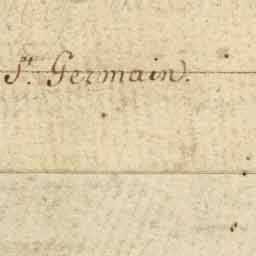 St. Germain).